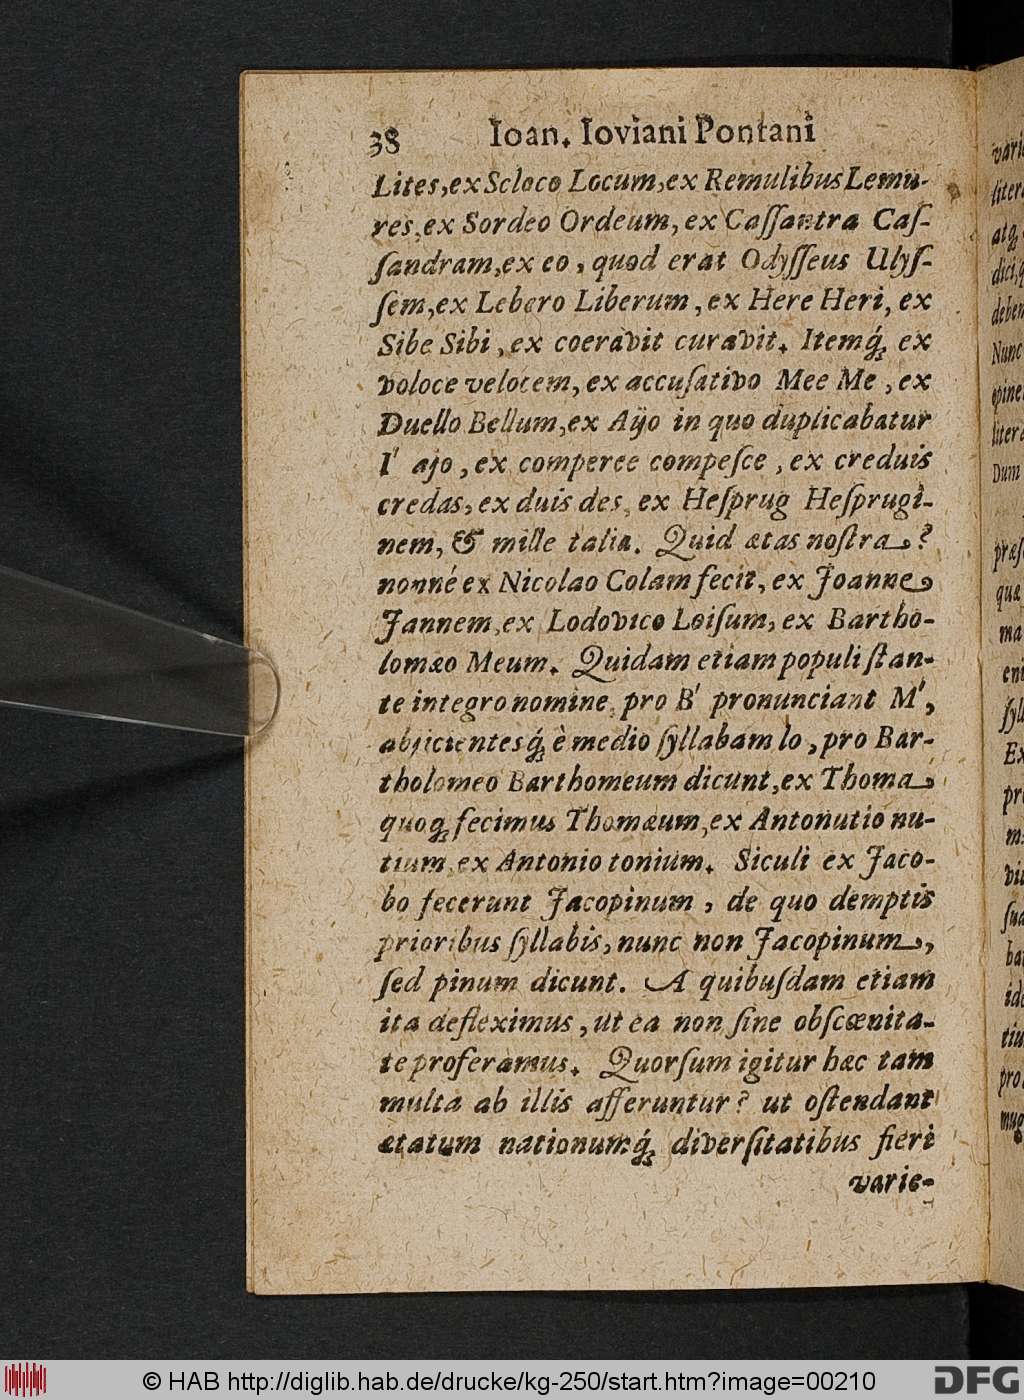 38 Ioan. Ioviani Pontani
Lites, ex Scloco Locum, ex Remulibus Lemu-
res, ex Sordeo Ordeum, ex Caſſantra Caſ-
ſandram, ex eo, quod erat Odyſſeus Ulyſ-
ſem, ex Lebero Liberum, ex Here Heri, ex
Sibe Sibi, ex coeravit curavit. Itemq́; ex
voloce velocem, ex accuſativo Mee Me, ex
Duello Bellum, ex Aijo in quo duplicabatur
I' ajo, ex comperce compeſce, ex creduis
credas, ex duis des, ex Heſprug Heſprugi-
nem, & mille talia. Quid ætas noſtra?
nonné ex Nicolao Colam fecit, ex Joanne
Jannem, ex Lodovico Loiſum, ex Bartho-
lomæo Meum. Quidam etiam populi ſtan-
te integro nomine, pro B' pronunciant M',
abjicientesq́; è medio ſyllabam lo, pro Bar-
tholomeo Barthomeum dicunt, ex Thoma
quoq; fecimus Thomæum, ex Antonutio nu-
tium, ex Antonio tonium. Siculi ex Jaco-
bo fecerunt Jacopinum, de quo demptis
prioribus ſyllabis, nunc non Jacopinum,
ſed pinum dicunt. A quibuſdam etiam
ita defleximus, ut ea non ſine obſcœnita-
te proferamus. Quorſum igitur hæc tam
multa ab illis afferuntur? ut oſtendant
ætatum nationumq́; diverſitatibus fieri
varie-
© HAB http://diglib.hab.de/drucke/kg-250/start.htm?image=00210
DFG